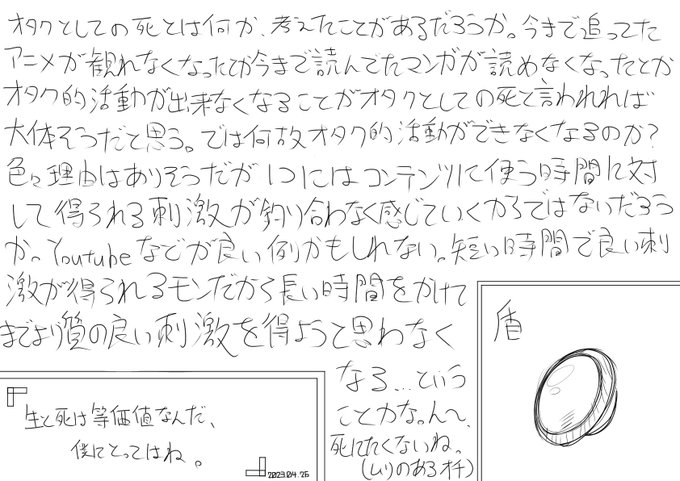 オタクとしての死とは何か、考えたことがあるだろうか。今まで追ってた
アニメが観れなくなったとか今まで読んでたマンガが読めなくなったとか
オタク的活動が出来なくなることがオタクとしての死と言われれば
大体そうだと思う。では何故オタク的活動ができなくなるのか?
色々理由はありそうだが1つにはコンテンツに使う時間に対
して得られる刺激が釣り合わなく感じていくからではないだろう
か。Youtubeなどが良い例かもしれない。短い時間で良い刺
激が得られるモンだから長い時間をかけて
までより質の良い刺激を得ようと思わなく
なる…という
ことかな。ん〜、
死にたくないね。
(ムリのあるオチ)
生と死は等価値なんだ、
僕にとってはね。
2023.04.26
盾